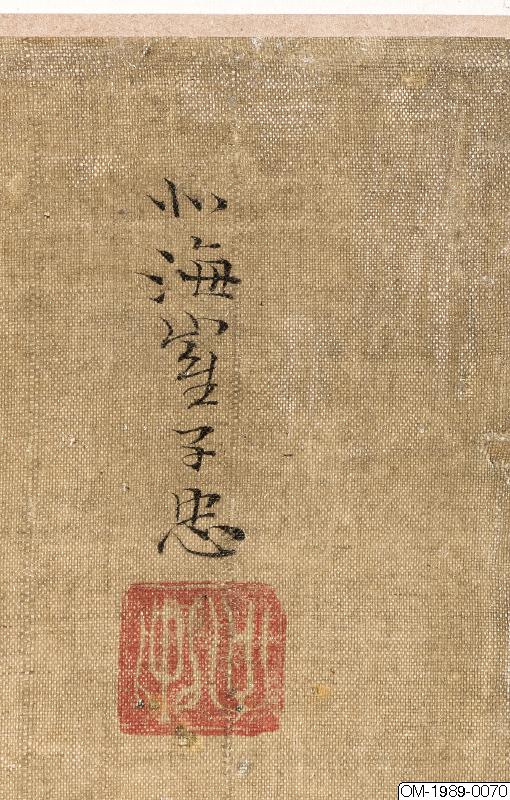 北海崔子忠
OM-1989-0070